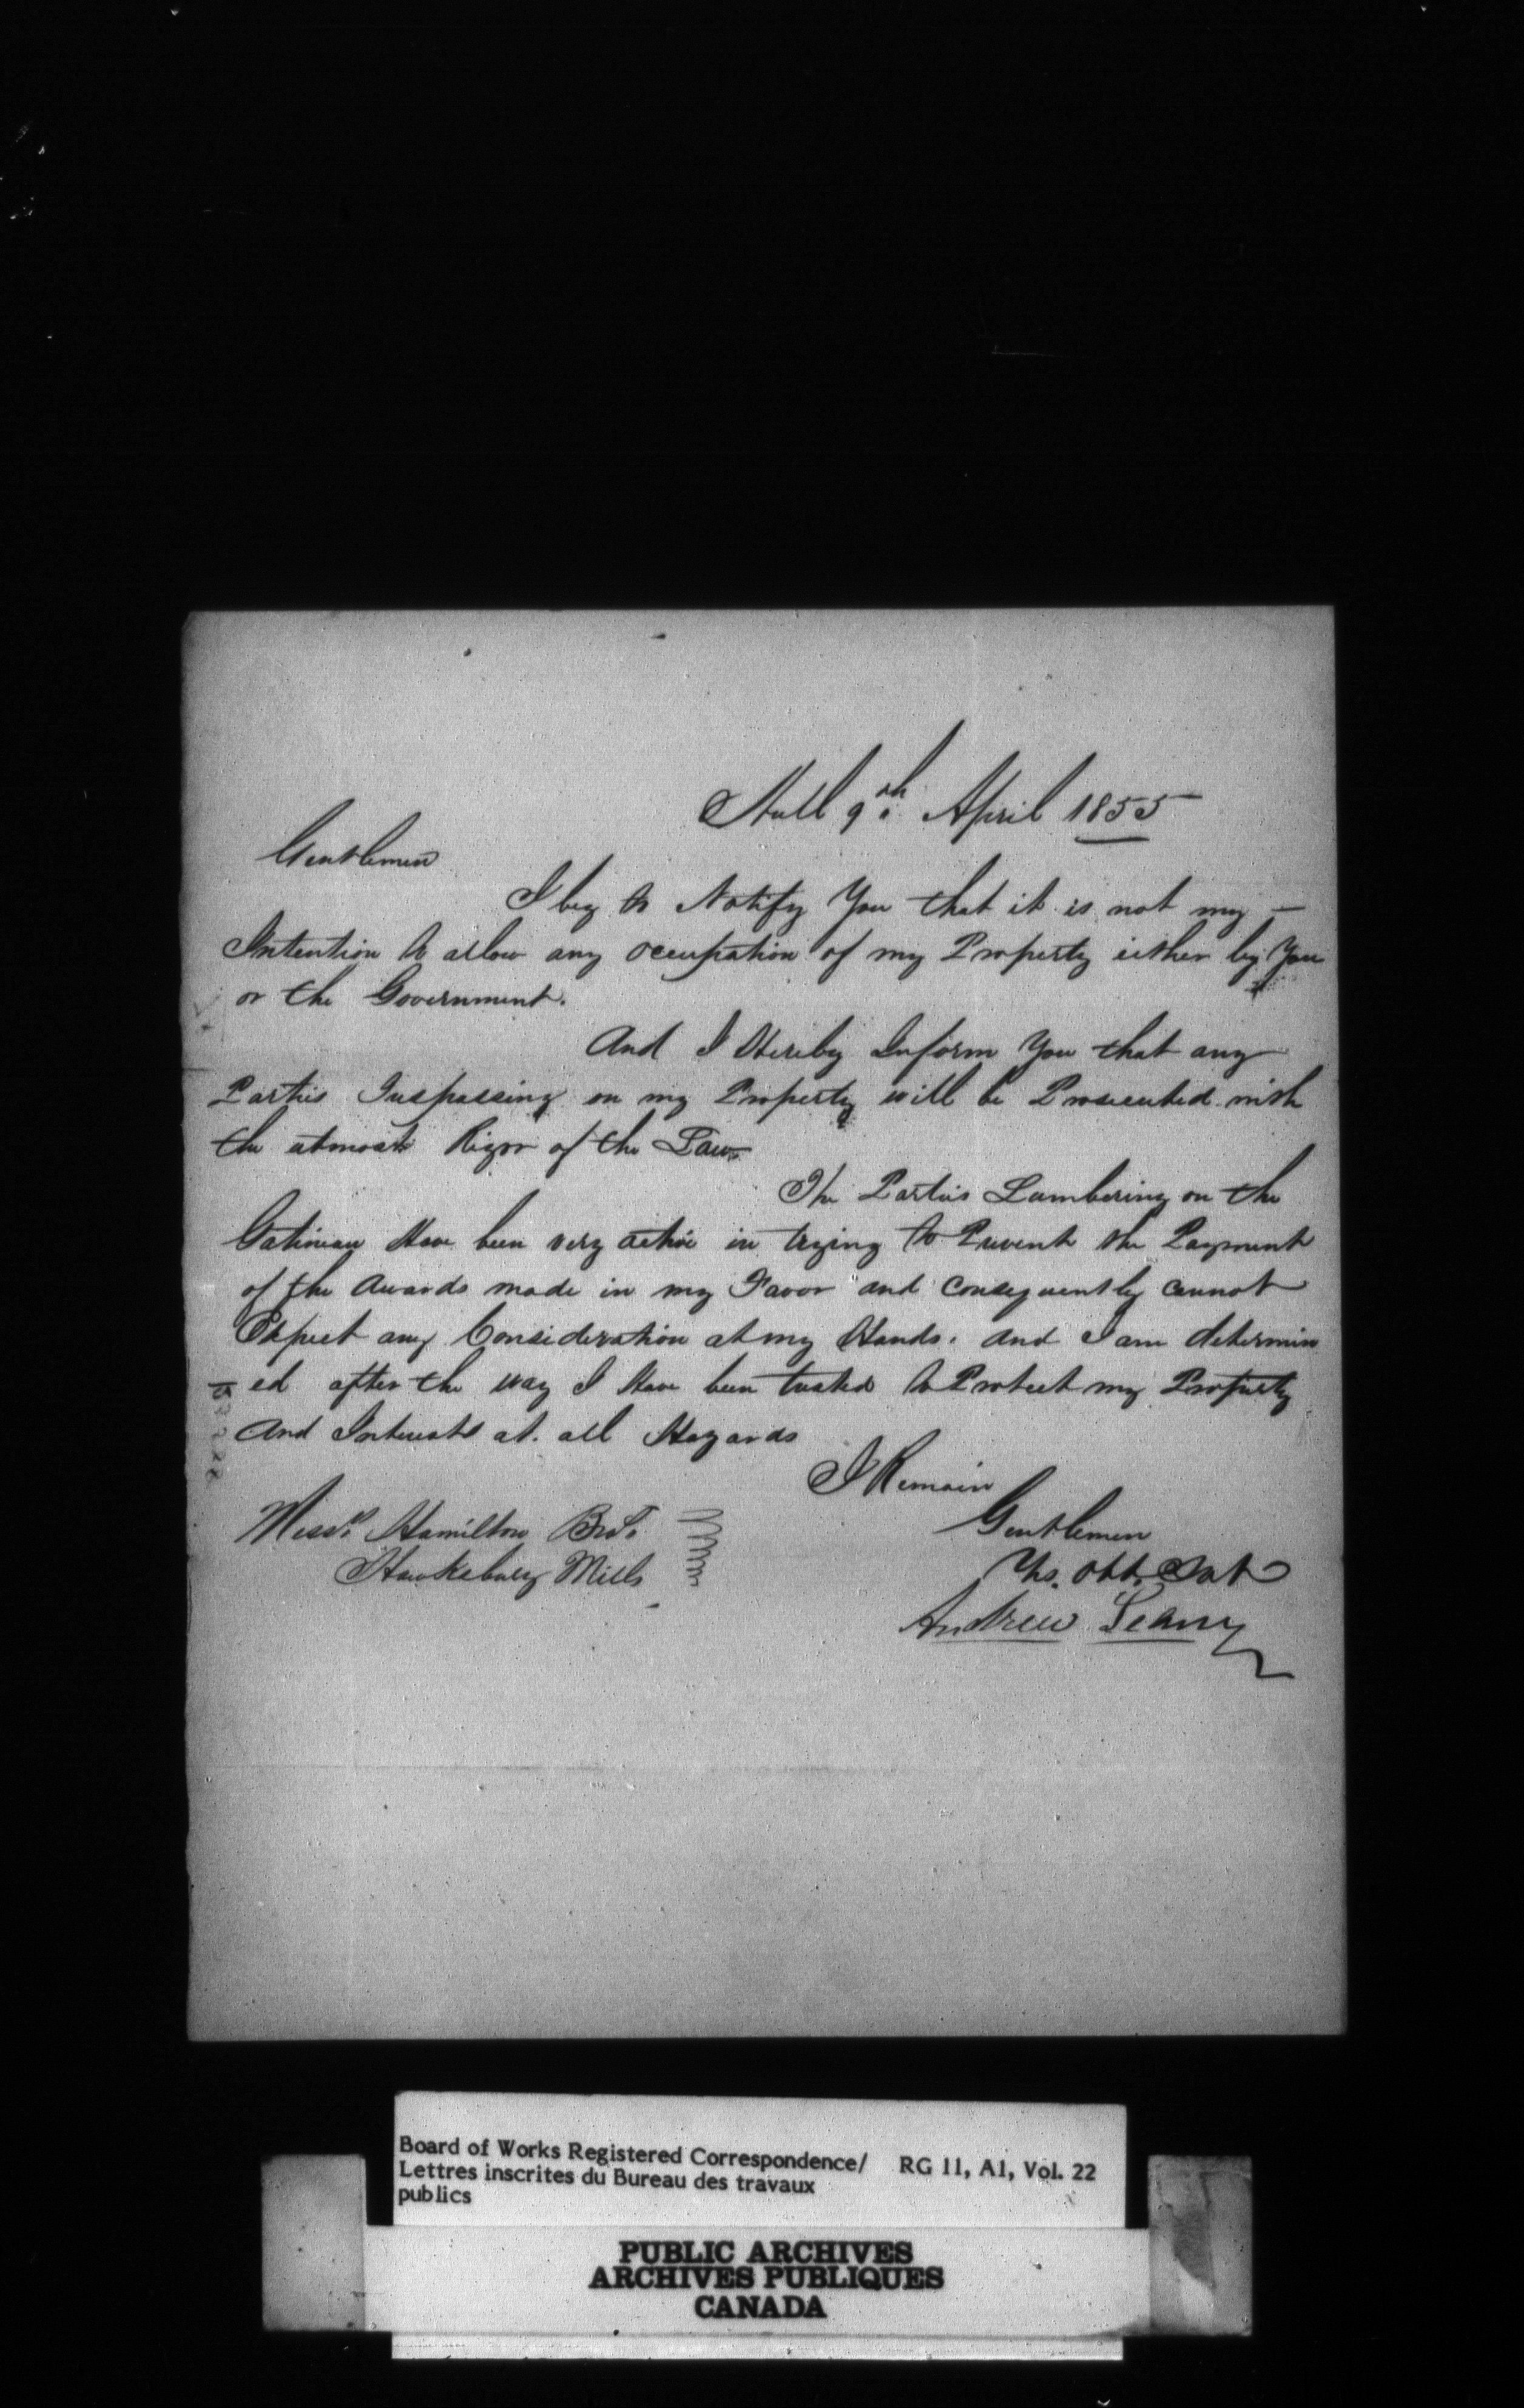 Hull 9th April 1855
Gentlemen
I beg to Notify You that it is not my -
Intention to allow any occupation of my Property either by You
or the Government.
And I Hereby Inform You that any
Parties Trespassing on my Property will be Prosecuted with
the utmost Rigor of the Law
The Parties Lumbering on the
Gatineau Have been very active in trying to Prevent the Payment
of the awards made in my Favor and consequently cannot
Expect any Consideration at my Hands. and I am determin
ed after the way I Have been treated to Protect my Property
and Interests at all Hazards
I Remain
Gentlemen
Yrs. Obt. Svt
Andrew Leamy
Messrs. Hamilton Bros.
Hawkesbury Mills
Board of Works Registered Correspondence/ RG 11, A1, Vol. 22
Lettres inscrites du Bureau des travaux
publics
PUBLIC ARCHIVES
ARCHIVES PUBLIQUES
CANADA